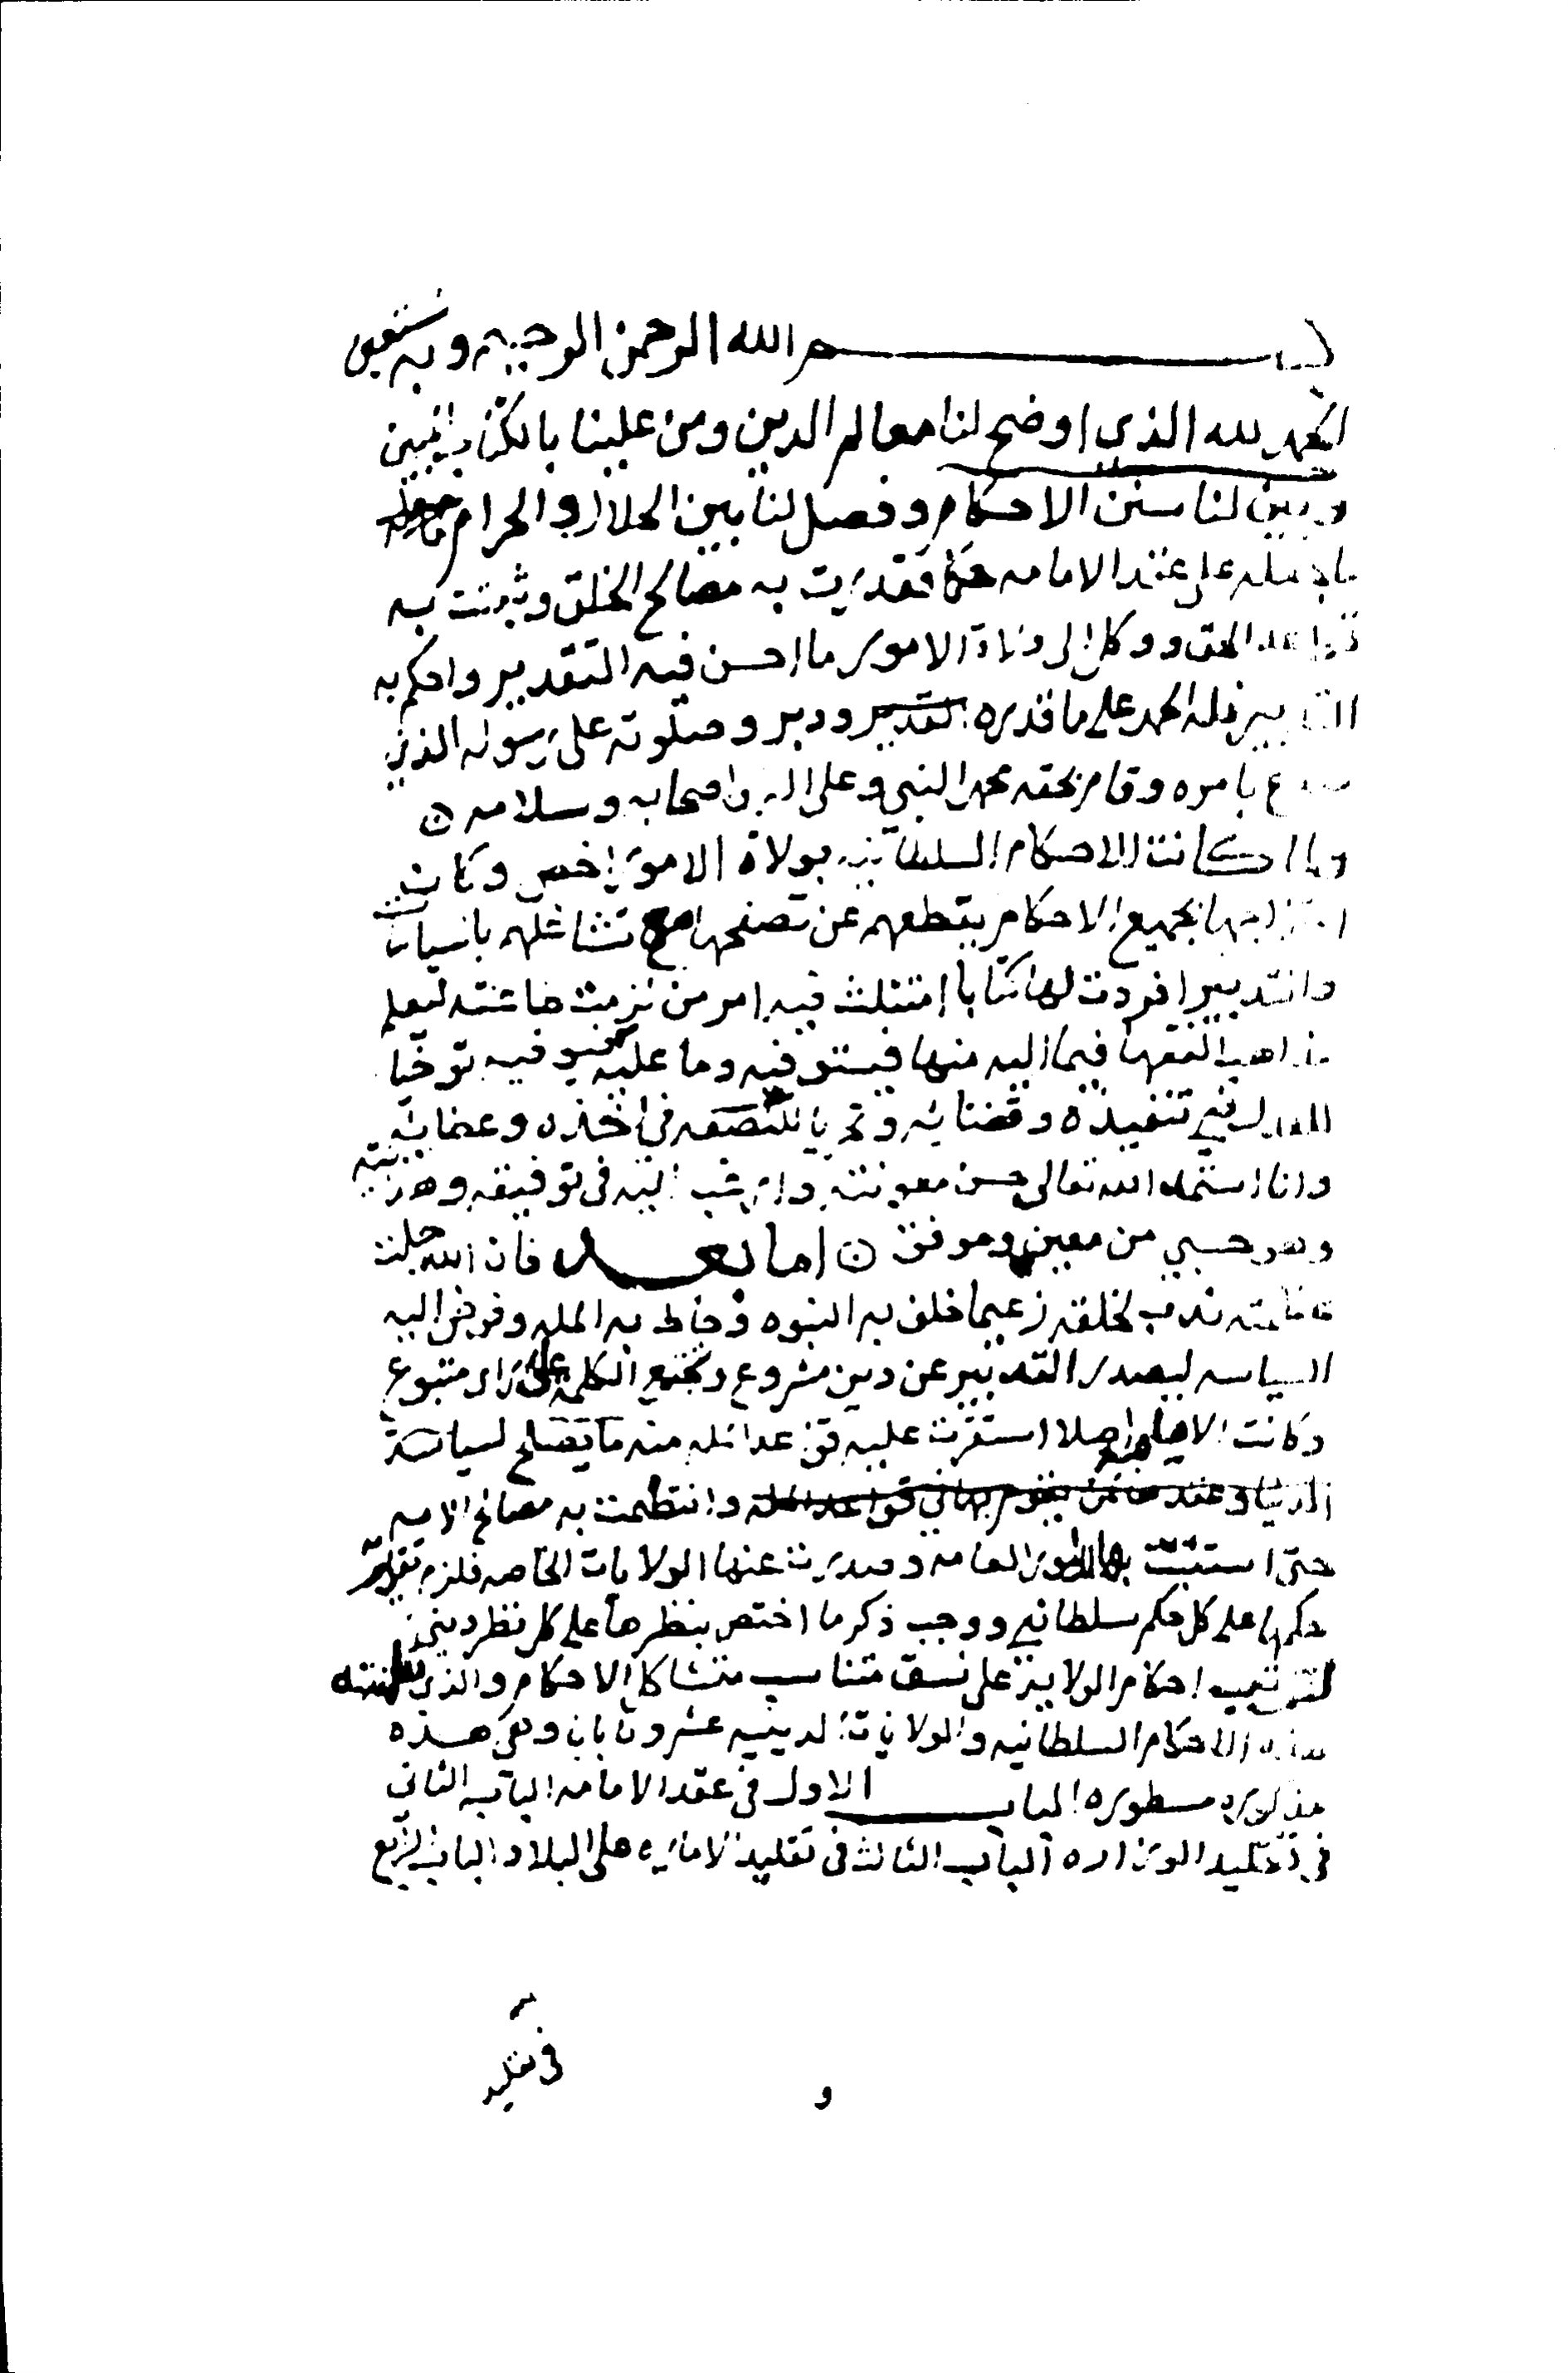 بسم الله الرحمن الرحيم وبه نستعين
الحمد لله الذي اوضح لنا معالم الدين ومن علينا بالكتاب المبين
وبين لنا سنن الاحكام وفصل لنا بين الحلال والحرام
على عقد الامامه حكما تقدرت به مصالح الخلق وثبتت به
قواعد الحق ووكل الى ولاة الامور ما احسن فيه التقدير واحكم به
التدبير فله الحمد على ما قدره ودبر وصلوته على رسوله الذي
صدع بامره وقام بحقه محمد النبي وعلى اله واصحابه وسلامه
ولما كانت الاحكام السلطانيه بولاة الامور اخص وكان
امتزاجها بجميع الاحكام يقطعهم عن تصفحها مع تشاغلهم بالسياسة
والتدبير افردت لها كتابا امتثلت فيه امر من لزمت طاعته ليعلم
مذاهب الفقها فيما اليه منها فيستوفيه وما عليه فيوفيه توخيا
للعدل في تنفيذه وقضايه وتحريا للنصفه في اخذه وعطايه
وانا استمد الله تعالى حسن معونته وارغب اليه في توفيقه وهدايته
وهو حسبي من معين وموفق اما بعد فان الله جلت
قدرته ندب لخلقه زعيما خلف به النبوه وحاط به المله وفوض اليه
السياسه ليصدر التدبير عن دين مشروع وتجتمع الكلمه على راى متبوع
وكانت الامامه اصلا استقرت عليه قواعد المله منه ما يصلح لسياسة
الدنيا وانتظمت به مصالح الامه
حتى استتبت بها الامور العامه وصدرت عنها الولايات الخاصه فلزم تقديم
حكمها على كل حكم سلطاني ووجب ذكر ما اختص بنظرها على كل نظر ديني
لترتيب احكام الولايه على نسق متناسب متشاكل الاحكام والذي تضمنته
هذه الاحكام السلطانيه والولايات الدينيه عشرون بابا وهى هذه
مذكوره مسطوره الباب الاول في عقد الامامه الباب الثاني
في تقليد الوزاره الباب الثالث في تقليد الاماره على البلاد الباب الرابع
في تقليد